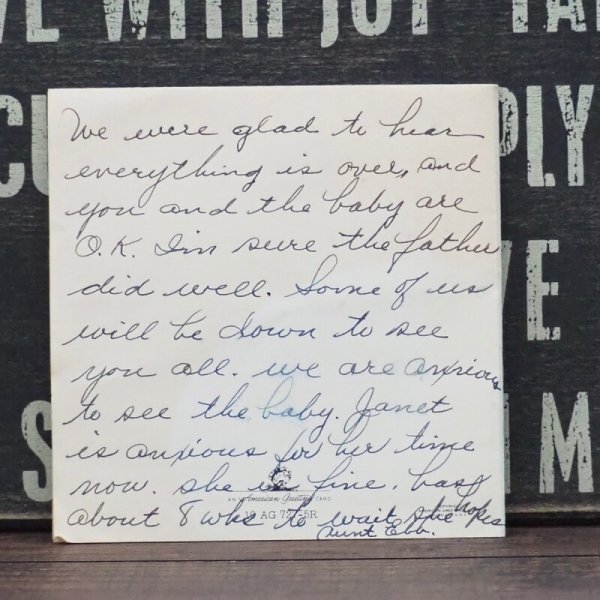 VE WITH JOY
We were glad to hear
everything is over, and
you and the baby are
O.K. I'm sure the father
did well. Some of us
will be down to see
you all. we are anxious
to see the baby. Janet
is anxious for her time
now. she is fine. has
AN American Greetings CARD
about 8 wks to wait she hopes
Aunt Ebb.
PLY